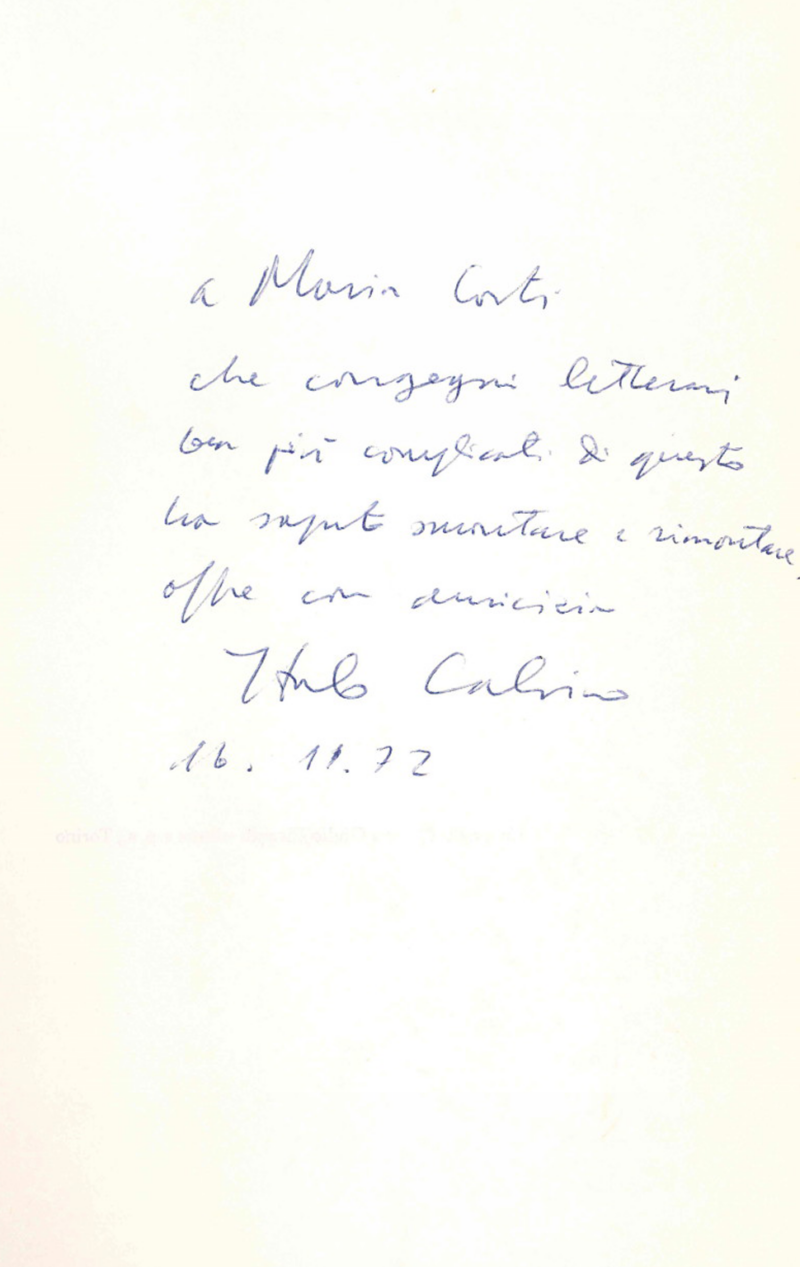 a Maria Corti
che congegni letterari
ben più complicati di questo
ha saputo smontare e rimontare,
offre con amicizia
Italo Calvino
16. 11. 72
Torino